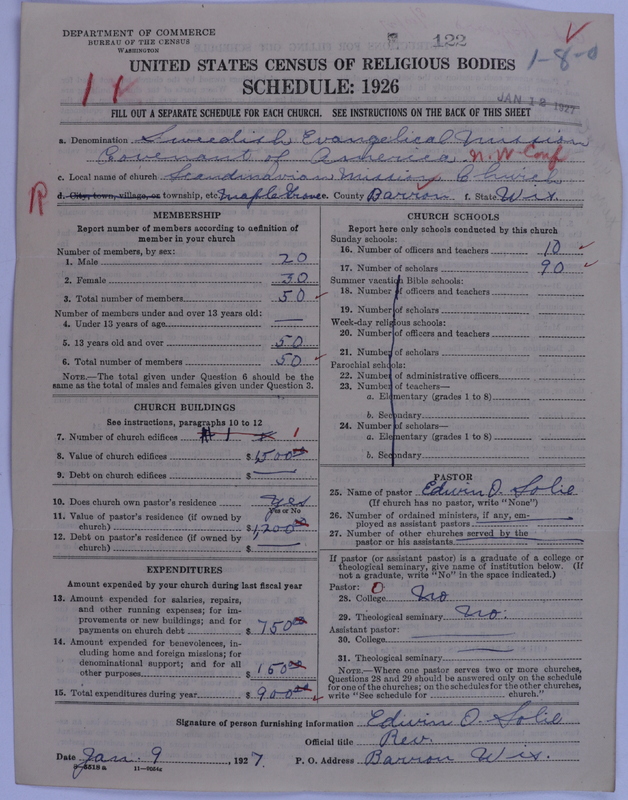 DEPARTMENT OF COMMERCE
BUREAU OF THE CENSUS
WASHINGTON
122
1-8-0
UNITED STATES CENSUS OF RELIGIOUS BODIES
SCHEDULE: 1926
JAN 12 1927
FILL OUT A SEPARATE SCHEDULE FOR EACH CHURCH. SEE INSTRUCTIONS ON THE BACK OF THIS SHEET
a. Denomination Swedish Evangelical Mission
Covenant of America N.W. Conf
c. Local name of church Scandinavian Mission Church
R
d. City, town, village, or township, etc. Maple Grove e. County Barron f. State Wis.
MEMBERSHIP
Report number of members according to definition of
member in your church
Number of members, by sex:
1. Male 20
2. Female 30
3. Total number of members 50
Number of members under and over 13 years old:
4. Under 13 years of age —
5. 13 years old and over 50
6. Total number of members 50
NOTE.—The total given under Question 6 should be the
same as the total of males and females given under Question 3.
CHURCH BUILDINGS
See instructions, paragraphs 10 to 12
7. Number of church edifices # 1 1
8. Value of church edifices $ 1500
9. Debt on church edifices $ —
10. Does church own pastor's residence yes
Yes or No
11. Value of pastor's residence (if owned by
church) $ 1,200
12. Debt on pastor's residence (if owned by
church) $ —
EXPENDITURES
Amount expended by your church during last fiscal year
13. Amount expended for salaries, repairs,
and other running expenses; for im-
provements or new buildings; and for
payments on church debt $ 750
14. Amount expended for benevolences, in-
cluding home and foreign missions; for
denominational support; and for all
other purposes $ 150
15. Total expenditures during year $ 900
CHURCH SCHOOLS
Report here only schools conducted by this church
Sunday schools:
16. Number of officers and teachers 10
17. Number of scholars 90
Summer vacation Bible schools:
18. Number of officers and teachers
19. Number of scholars
Week-day religious schools:
20. Number of officers and teachers
21. Number of scholars
Parochial schools:
22. Number of administrative officers
23. Number of teachers—
a. Elementary (grades 1 to 8)
b. Secondary
24. Number of scholars—
a. Elementary (grades 1 to 8)
b. Secondary
PASTOR
25. Name of pastor Edwin O. Solie
(If church has no pastor, write "None")
26. Number of ordained ministers, if any, em-
ployed as assistant pastors
27. Number of other churches served by the
pastor or his assistants
If pastor (or assistant pastor) is a graduate of a college or
theological seminary, give name of institution below. (If
not a graduate, write "No" in the space indicated.)
Pastor: 0
28. College No
29. Theological seminary No.
Assistant pastor:
30. College
31. Theological seminary
NOTE.—Where one pastor serves two or more churches,
Questions 28 and 29 should be answered only on the schedule
for one of the churches; on the schedules for the other churches,
write "See schedule for church."
Signature of person furnishing information Edwin O. Solie
Official title Rev.
Date Jan. 9, 1927 P. O. Address Barron Wis.
11—9064